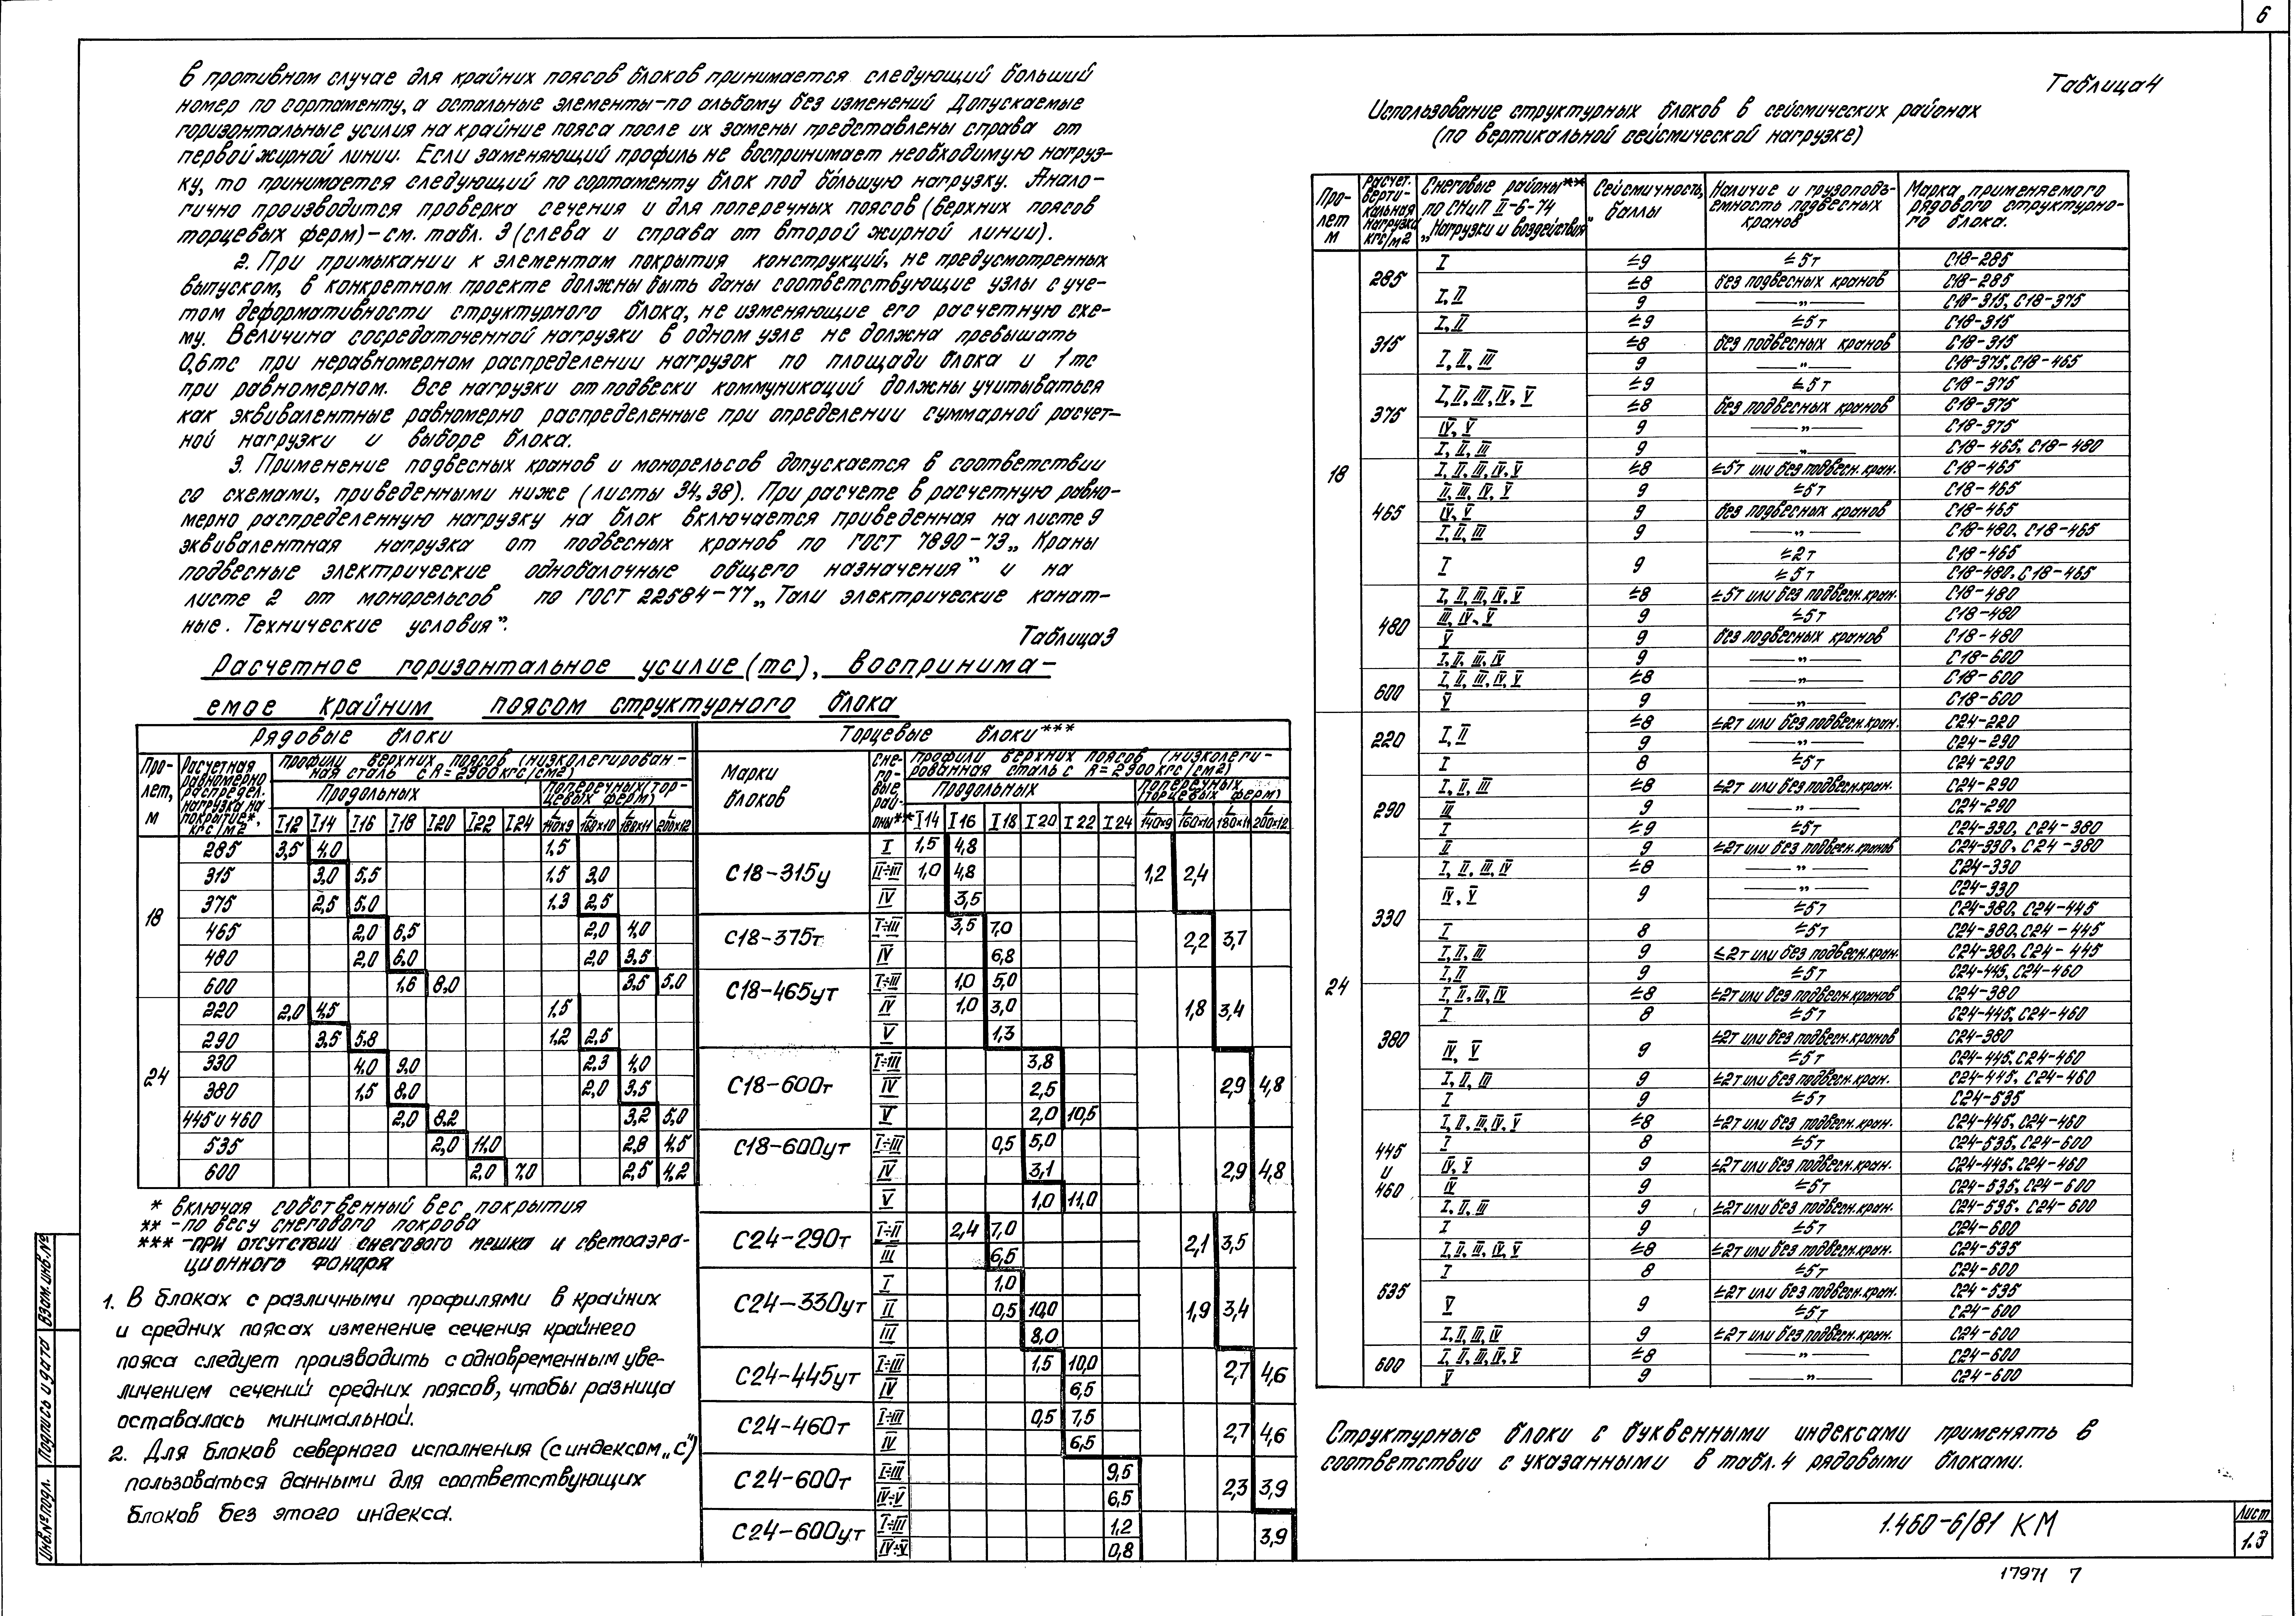 6
в противном случае для крайних поясов блоков принимается следующий больший
номер по сортаменту, а остальные элементы-по альбому без изменений Допускаемые
горизонтальные усилия на крайние пояса после их замены представлены справа от
первой жирной линии. Если заменяющий профиль не воспринимает необходимую нагруз-
ку, то принимается следующий по сортаменту блок под бо́льшую нагрузку. Анало-
гично производится проверка сечения и для поперечных поясов (верхних поясов
торцевых ферм)-см. табл. 3 (слева и справа от второй жирной линии).
2. При примыкании к элементам покрытия конструкций, не предусмотренных
выпуском, в конкретном проекте должны быть даны соответствующие узлы с уче-
том деформативности структурного блока, не изменяющие его расчетную схе-
му. Величина сосредоточенной нагрузки в одном узле не должна превышать
0,6тс при неравномерном распределении нагрузок по площади блока и 1тс
при равномерном. Все нагрузки от подвески коммуникаций должны учитываться
как эквивалентные равномерно распределенные при определении суммарной расчет-
ной нагрузки и выборе блока.
3. Применение подвесных кранов и монорельсов допускается в соответствии
со схемами, приведенными ниже (листы 34,38). При расчете в расчетную равно-
мерно распределенную нагрузку на блок включается приведенная на листе 9
эквивалентная нагрузка от подвесных кранов по ГОСТ 7890-73 „Краны
подвесные электрические однобалочные общего назначения" и на
листе 2 от монорельсов по ГОСТ 22584-77 „Тали электрические канат-
ные. Технические условия".
Таблица 3
Расчетное горизонтальное усилие (тс), воспринима-
емое крайним поясом структурного блока
Рядовые блоки
Про-лет, м | Расчетная равномерно распредел. нагрузка на покрытие*, кгс/м2 | Профили верхних поясов (низколегирован-ная сталь с R=2900 кгс/см2)
Продольных | Поперечных (тор-цевых ферм)
I12 I14 I16 I18 I20 I22 I24 L140×9 L160×10 L180×11 L200×12
18
285 3,5 4,0 1,5
315 3,0 5,5 1,5 3,0
375 2,5 5,0 1,3 2,5
465 2,0 6,5 2,0 4,0
480 2,0 6,0 2,0 3,5
600 1,6 8,0 3,5 5,0
24
220 2,0 4,5 1,5
290 3,5 5,8 1,2 2,5
330 4,0 9,0 2,3 4,0
380 1,5 8,0 2,0 3,5
445 и 460 2,0 8,2 3,2 5,0
535 2,0 11,0 2,8 4,5
600 2,0 7,0 2,5 4,2
* включая собственный вес покрытия
** -по весу снегового покрова
*** -при отсутствии снегового мешка и светоаэра-
ционного фонаря
1. В блоках с различными профилями в крайних
и средних поясах изменение сечения крайнего
пояса следует производить с одновременным уве-
личением сечений средних поясов, чтобы разница
оставалась минимальной.
2. Для блоков северного исполнения (с индексом „С")
пользоваться данными для соответствующих
блоков без этого индекса.
Торцевые блоки***
Марки блоков | Сне-го-вые рай-оны** | Профили верхних поясов (низколеги-рованная сталь с R=2900 кгс/см2)
Продольных | Поперечных (торцевых ферм)
I14 I16 I18 I20 I22 I24 L140×9 L160×10 L180×11 L200×12
С18-315у 1,2 2,4
I 1,5 4,8
II÷III 1,0 4,8
IV 3,5
С18-375т 2,2 3,7
I÷III 3,5 7,0
IV 6,8
С18-465ут 1,8 3,4
I÷III 1,0 5,0
IV 1,0 3,0
V 1,3
С18-600т 2,9 4,8
I÷III 3,8
IV 2,5
V 2,0 10,5
С18-600ут 2,9 4,8
I÷III 0,5 5,0
IV 3,1
V 1,0 11,0
С24-290т 2,1 3,5
I÷II 2,4 7,0
III 6,5
С24-330ут 1,9 3,4
I 1,0
II 0,5 10,0
III 8,0
С24-445ут 2,7 4,6
I÷III 1,5 10,0
IV 6,5
С24-460т 2,7 4,6
I÷III 0,5 7,5
IV 6,5
С24-600т 2,3 3,9
I÷III 9,5
IV÷V 6,5
С24-600ут 3,9
I÷III 1,2
IV÷V 0,8
Таблица 4
Использование структурных блоков в сейсмических районах
(по вертикальной сейсмической нагрузке)
Про-лет м | Расчет. верти-кальная нагрузка кгс/м2 | Снеговые районы** по СНиП II-6-74 „Нагрузки и воздействия" | Сейсмичность, баллы | Наличие и грузоподъ-емность подвесных кранов | Марка применяемого рядового структурно-го блока.
18
285
I ≤9 ≤5т С18-285
I, II ≤8 без подвесных кранов С18-285
9 —„— С18-315, С18-375
315
I, II ≤9 ≤5т С18-315
I, II, III ≤8 без подвесных кранов С18-315
9 —„— С18-375, С18-465
375
I, II, III, IV, V ≤9 ≤5т С18-375
≤8 без подвесных кранов С18-375
IV, V 9 —„— С18-375
I, II, III 9 —„— С18-465, С18-480
465
I, II, III, IV, V ≤8 ≤5т или без подвесн.кран. С18-465
II, III, IV, V 9 ≤5т С18-465
IV, V 9 без подвесных кранов С18-465
I, II, III 9 —„— С18-480, С18-465
I 9 ≤2т С18-465
≤5т С18-480, С18-465
480
I, II, III, IV, V ≤8 ≤5т или без подвесн.кран. С18-480
III, IV, V 9 ≤5т С18-480
V 9 без подвесных кранов С18-480
I, II, III, IV 9 —„— С18-600
600
I, II, III, IV, V ≤8 —„— С18-600
V 9 —„— С18-600
24
220
I, II ≤8 ≤2т или без подвесн.кран. С24-220
9 —„— С24-290
I 8 ≤5т С24-290
290
I, II, III ≤8 ≤2т или без подвесн.кран. С24-290
III 9 —„— С24-290
I ≤9 ≤5т С24-330, С24-380
II 9 ≤2т или без подвесн.кранов С24-330, С24-380
330
I, II, III, IV ≤8 —„— С24-330
IV, V 9 —„— С24-330
≤5т С24-380, С24-445
I 8 ≤5т С24-380, С24-445
I, II, III 9 ≤2т или без подвесн.кран. С24-380, С24-445
I, II 9 ≤5т С24-445, С24-460
380
I, II, III, IV ≤8 ≤2т или без подвесн.кранов С24-380
I 8 ≤5т С24-445, С24-460
IV, V 9 ≤2т или без подвесн.кранов С24-380
≤5т С24-445, С24-460
I, II, III 9 ≤2т или без подвесн.кран. С24-445, С24-460
I 9 ≤5т С24-535
445 и 460
I, II, III, IV, V ≤8 ≤2т или без подвесн.кран. С24-445, С24-460
I 8 ≤5т С24-535, С24-600
IV, V 9 ≤2т или без подвесн.кран. С24-445, С24-460
IV 9 ≤5т С24-535, С24-600
I, II, III 9 ≤2т или без подвесн.кран. С24-535, С24-600
I 9 ≤5т С24-600
535
I, II, III, IV, V ≤8 ≤2т или без подвесн.кран. С24-535
I 8 ≤5т С24-600
V 9 ≤2т или без подвесн.кран. С24-535
≤5т С24-600
I, II, III, IV 9 ≤2т или без подвесн.кран. С24-600
600
I, II, III, IV, V ≤8 —„— С24-600
V 9 —„— С24-600
Структурные блоки с буквенными индексами применять в
соответствии с указанными в табл. 4 рядовыми блоками.
1.460-6/81 КМ
Лист
1.3
17971 7
Инв.№ подл. Подпись и дата Взам.инв.№